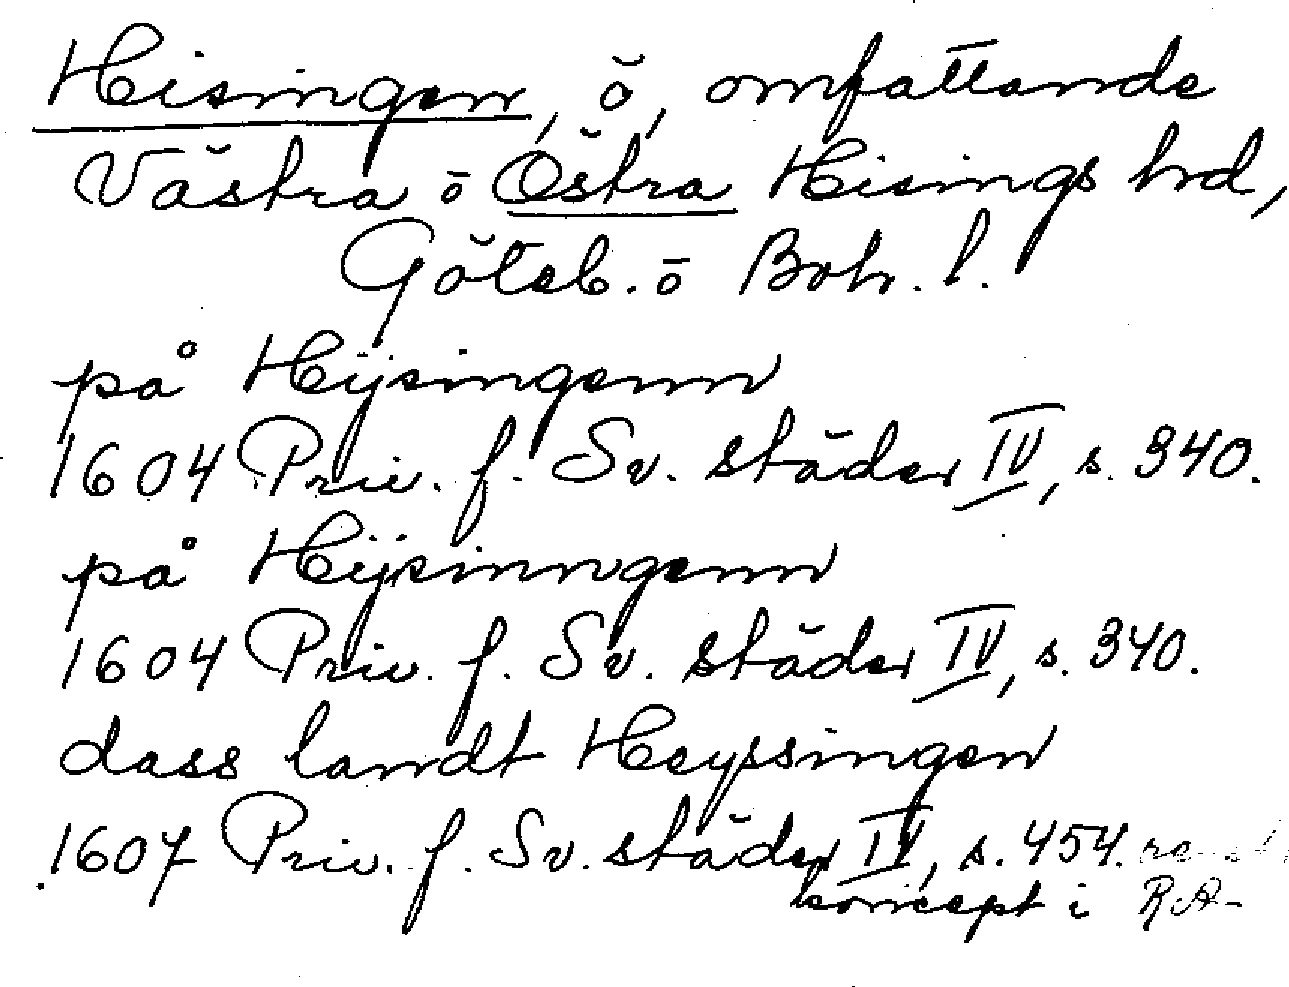 Hisingen, ö, omfattande
Västra o Östra Hisings hrd,
Göteb. o Boh. l.
på Hijsingenn
1604 Priv. f. Sv. städer IV, s. 340.
på Hijsinngenn
1604 Priv. f. Sv. städer IV, s. 340.
dass landt Heyssingen
1607 Priv. f. Sv. städer IV, s. 454.
koncept i RA